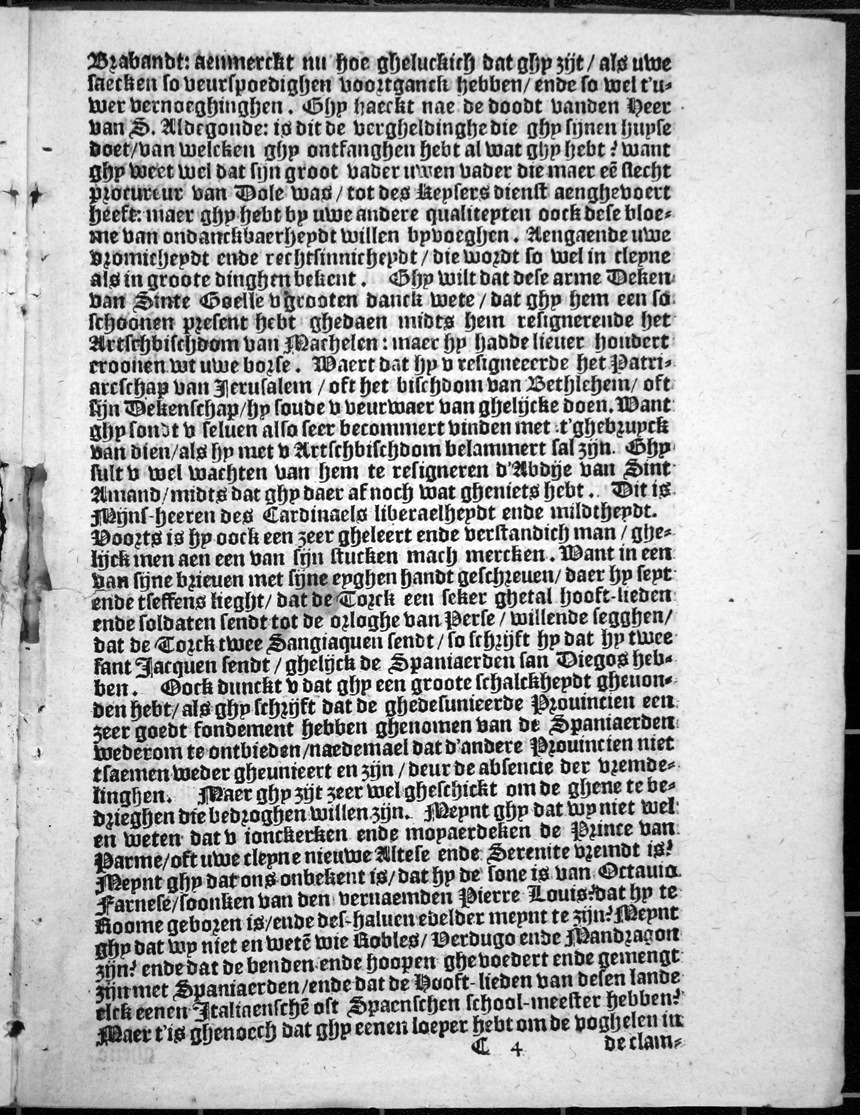 Brabandt: aenmerckt nu hoe gheluckich dat ghy zijt / als uwe
saecken so veurspoedighen voortganck hebben / ende so wel t'u-
wer vernoeghinghen. Ghy haeckt nae de doodt vanden Heer
van S. Aldegonde: is dit de vergheldinghe die ghy sijnen huyse
doet / van welcken ghy ontfanghen hebt al wat ghy hebt? want
ghy weet wel dat sijn groot vader uwen vader die maer eē slecht
procureur van Dole was / tot des Keysers dienst aenghevoert
heeft: maer ghy hebt by uwe andere qualiteyten oock dese bloe-
me van ondanckbaerheydt willen byvoeghen. Aengaende uwe
vromicheydt ende rechtsinnicheydt / die wordt so wel in cleyne
als in groote dinghen bekent. Ghy wilt dat dese arme Deken
van Sinte Goelle v grooten danck wete / dat ghy hem een so
schoonen present hebt ghedaen midts hem resignerende het
Artschbischdom van Machelen: maer hy hadde liever hondert
croonen wt uwe borse. Waert dat hy v resigneerde het Patri-
arcschap van Jerusalem / oft het bischdom van Bethlehem / oft
sijn Dekenschap / hy soude v veurwaer van ghelijcke doen. Want
ghy sondt v selven also seer becommert vinden met t'ghebruyck
van dien / als hy met v Artschbischdom belammert sal zijn. Ghy
sult v wel wachten van hem te resigneren d'Abdije van Sint
Amand / midts dat ghy daer af noch wat gheniets hebt. Dit is
Mijns-heeren des Cardinaels liberaelheydt ende mildtheydt.
Voorts is hy oock een zeer gheleert ende verstandich man / ghe-
lijck men aen een van sijn stucken mach mercken. Want in een
van sijne brieven met sijne eyghen handt geschreven / daer hy seyt
ende tseffens lieght / dat de Torck een seker ghetal hooft-lieden
ende soldaten sendt tot de orloghe van Perse / willende segghen /
dat de Torck twee Sangiaquen sendt / so schrijft hy dat hy twee
sant Jacquen sendt / ghelijck de Spaniaerden san Diegos heb-
ben. Oock dunckt v dat ghy een groote schalckheydt ghevon-
den hebt / als ghy schrijft dat de ghedesunieerde Provincien een
zeer goedt fondement hebben ghenomen van de Spaniaerden
wederom te ontbieden / naedemael dat d'andere Provincien niet
tsaemen weder gheunieert en zijn / deur de absencie der vremde-
linghen. Maer ghy zijt zeer wel gheschickt om de ghene te be-
drieghen die bedroghen willen zijn. Meynt ghy dat wy niet wel
en weten dat v ionckerken ende moyaerdeken de Prince van
Parme / oft uwe cleyne nieuwe Altese ende Serenite vremdt is?
Meynt ghy dat ons onbekent is / dat hy de sone is van Octavio
Farnese / soonken van den vernaemden Pierre Louis? dat hy te
Roome geboren is / ende des-halven edelder meynt te zijn? Meynt
ghy dat wy niet en wetē wie Robles / Verdugo ende Mandragon
zijn? ende dat de benden ende hoopen ghevoedert ende gemengt
zijn met Spaniaerden / ende dat de Hooft-lieden van desen lande
elck eenen Italiaenschē oft Spaenschen school-meester hebben?
Maer t'is ghenoech dat ghy eenen loeper hebt om de voghelen in
C 4 de clam-